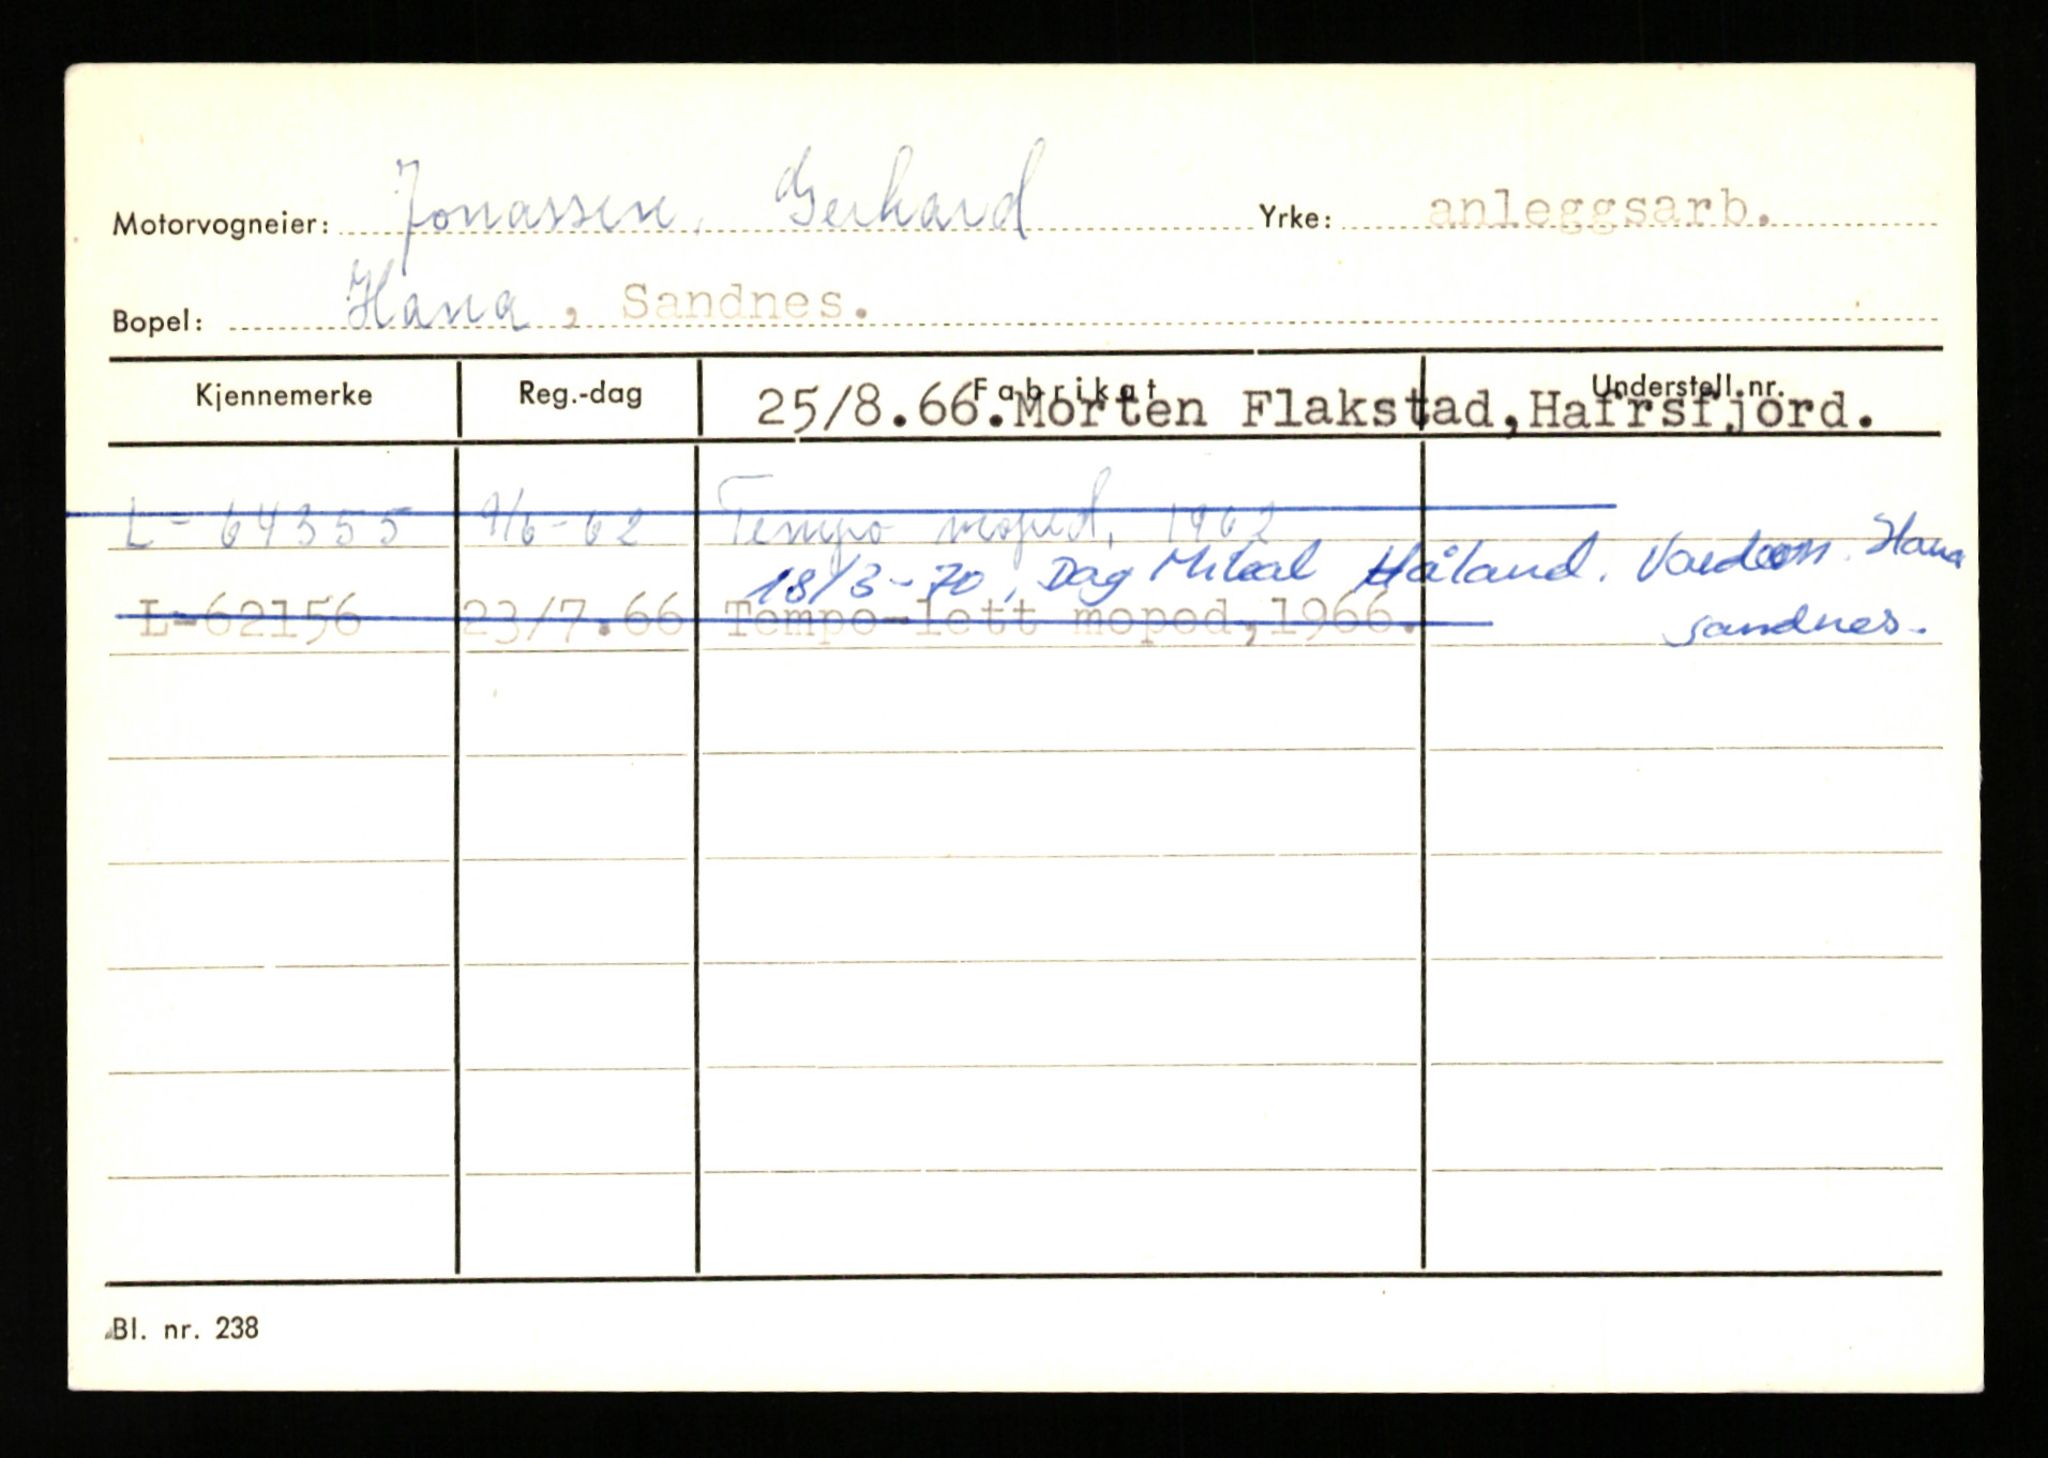 Motorvogneier: Jonassen, Gerhard Yrke: anleggsarb.
Bopel: Hana, Sandnes.
Kjennemerke Reg.-dag Fabrikat Understell.nr.
25/8.66.Morten Flakstad,Hafrsfjord.
L-64355 9/6-62 Tempo moped, 1962
18/3-70, Dag Mikal Håland. Hana
L-62156 23/7.66 Tempo-lett moped,1966. Sandnes.
Bl. nr. 238